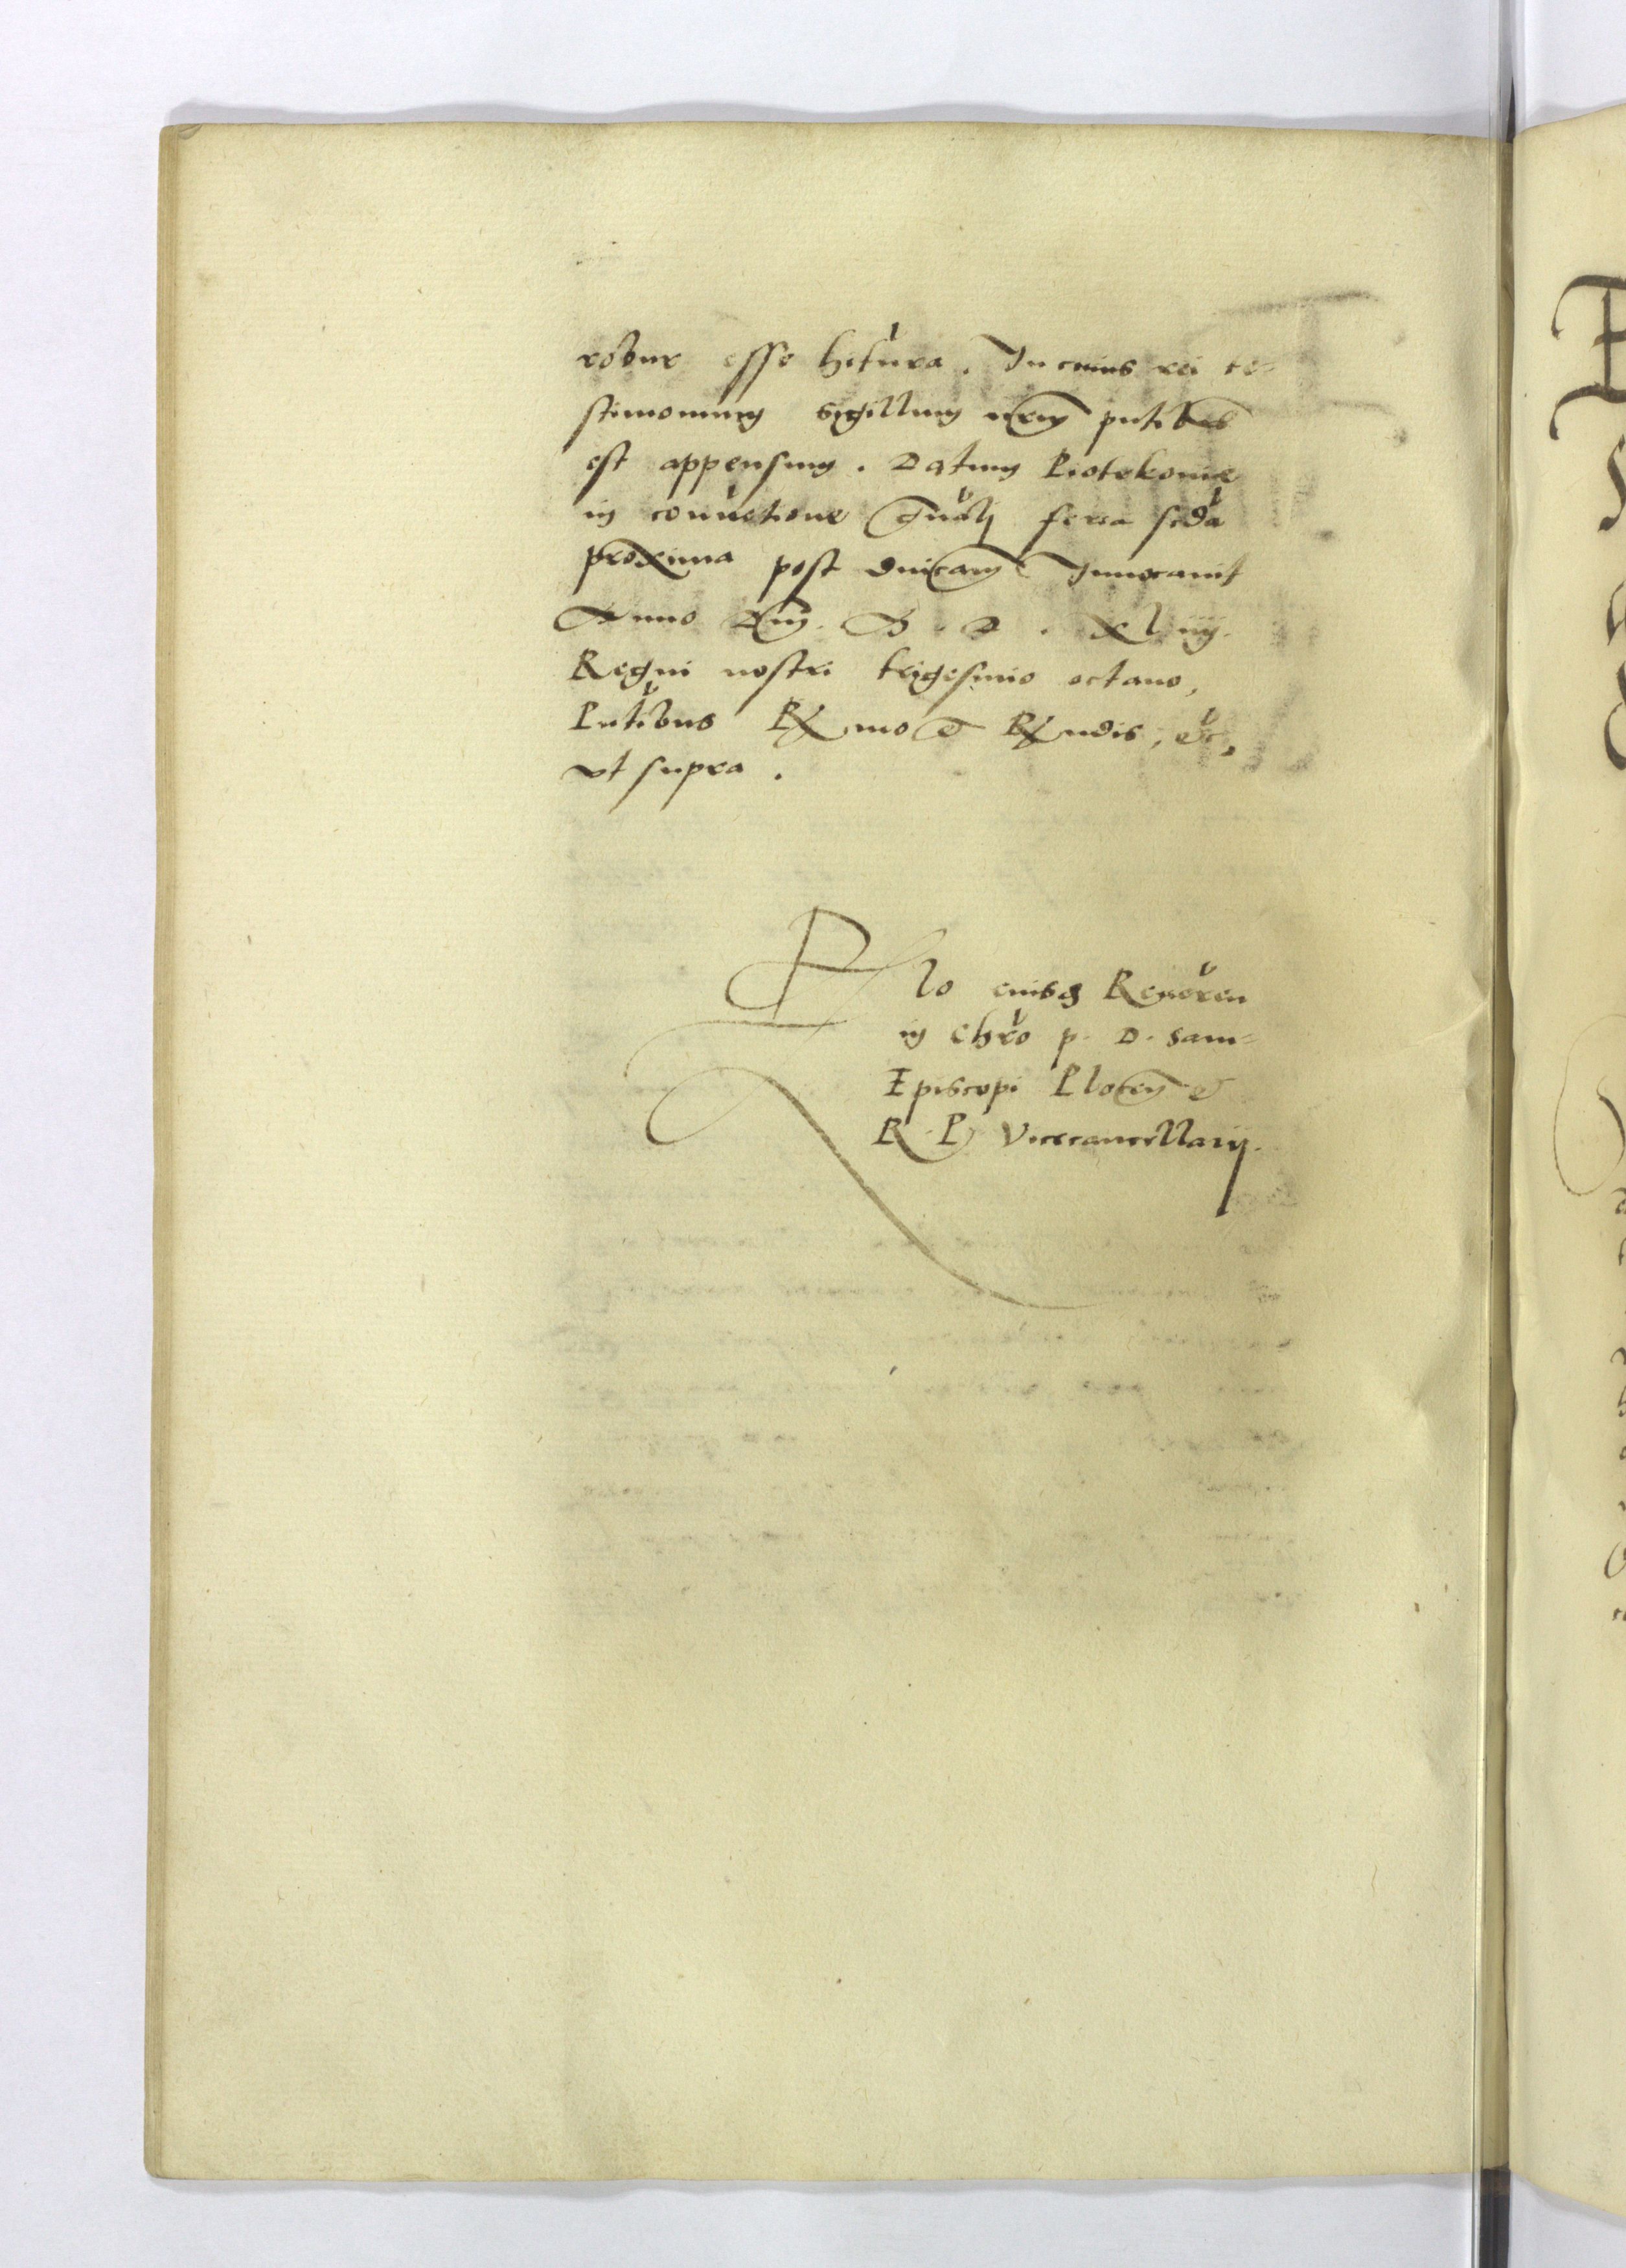 robur esse hitura. In cuius rei te-
stimonium sigillum nrm pntibus
est appensum. Datum Piotrkoviæ
in conventione gnali feria scda
proxima post dnicam Inuocauit
Anno Dni. M. D. Xliiij.
Regni nostri trigesimo octauo,
Pntibus Rmo et Rndis, etc,
vt supra.
Rlo eiusdem Reueren
in Chro p. D. Sam-
Episcopi Plocen et
R. P. Vicecancellarij.